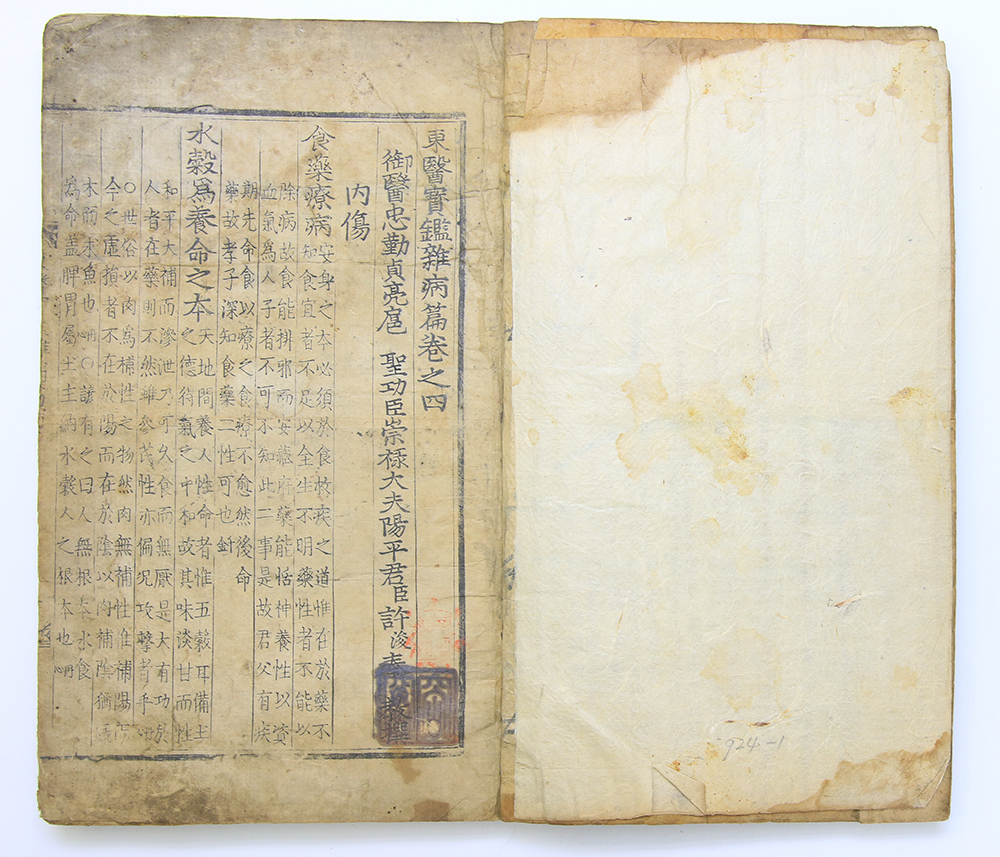 東醫寶鑑雜病篇卷之四
御醫忠勤貞亮扈 聖功臣崇禄大夫陽平君臣許浚奉 教撰
內傷
食藥療病
安身之本必須於食救疾之道惟在於藥不
知食宜者不足以全生不明藥性者不能以
除病故食能排邪而安藏府藥能恬神養性以資
血氣爲人子者不可不知此二事是故君父有疾
期先命食以療之食療不愈然後命
藥故孝子深知食藥二性可也
水穀爲養命之本
天地間養人性命者惟五穀耳備土
之德得氣之中和故其味淡甘而性
和平大補而滲泄乃可久食而無厭是大有功於
人者在藥則不然雖參芪性亦偏況攻擊者乎
○世俗以肉爲補性之物然肉無補性惟補陽而
今之虛損者不在於陽而在於陰以肉補陰猶緣
木而求魚也 ○諺有之曰人無根本水食
爲命盖脾胃屬土主納水穀人之根本也
924-1